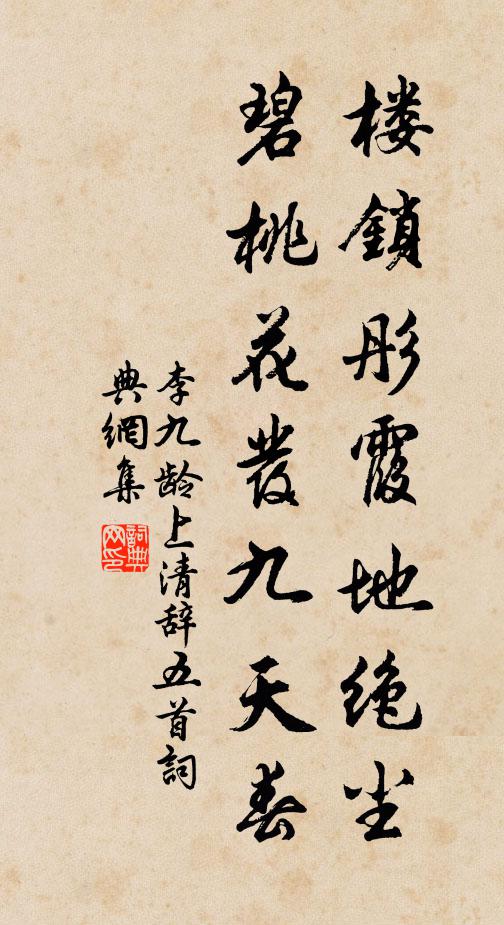 楼鎖彤霞地绝尘
碧桃花發九天春
李九龄上清辞五首詞
典網集
詞典
网印